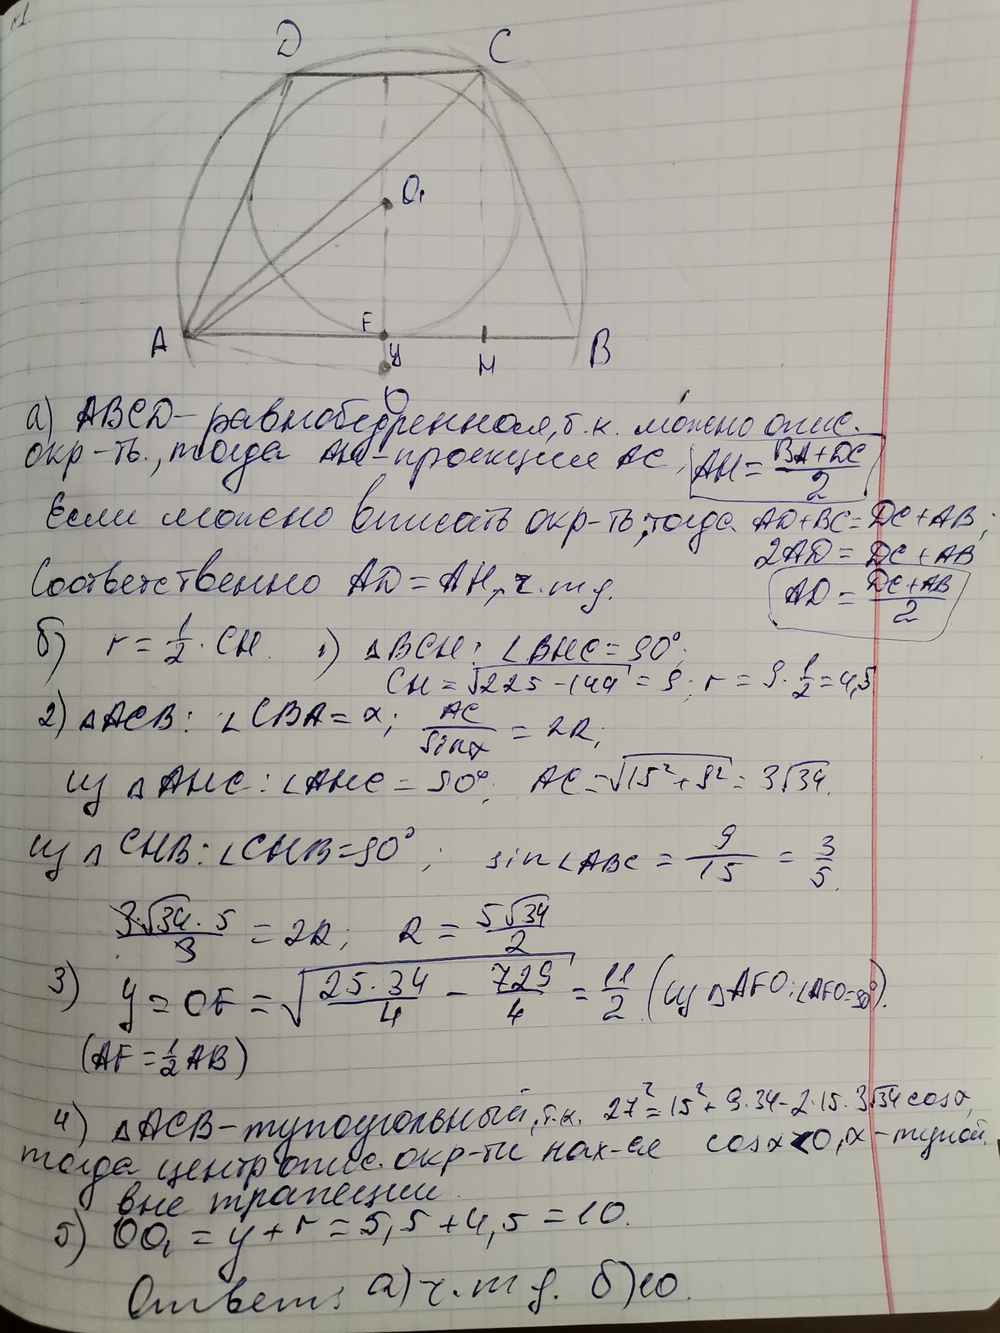 №1.
D C
O₁
A F H B
y
O
а) ABCD – равнобедренная, т.к. можно опис.
окр-ть., тогда AH – проекция AC, AH = (BA + DC)/2
Если можно вписать окр-ть, тогда AD + BC = DC + AB;
2AD = DC + AB
Соответственно AD = AH, ч.т.д. AD = (DC + AB)/2
б) r = 1/2 · CH. 1) △BCH: ∠BHC = 90°;
CH = √(225 - 144) = 9; r = 9 · 1/2 = 4,5
2) △ACB: ∠CBA = α; AC/sinα = 2R;
из △AHC: ∠AHC = 90°; AC = √(15² + 9²) = 3√34.
из △CHB: ∠CHB = 90°; sin∠ABC = 9/15 = 3/5.
(3√34 · 5)/3 = 2R; R = 5√34/2
3) y = OF = √(25·34/4 - 729/4) = 11/2 (из △AFO: ∠AFO = 90°).
(AF = 1/2 AB)
4) △ACB – тупоугольный, т.к. 27² = 15² + 9·34 - 2·15·3√34 cosα,
тогда центр опис. окр-ти нах-ся cosα < 0, α – тупой,
вне трапеции.
5) OO₁ = y + r = 5,5 + 4,5 = 10.
Ответ: а) ч.т.д. б) 10.